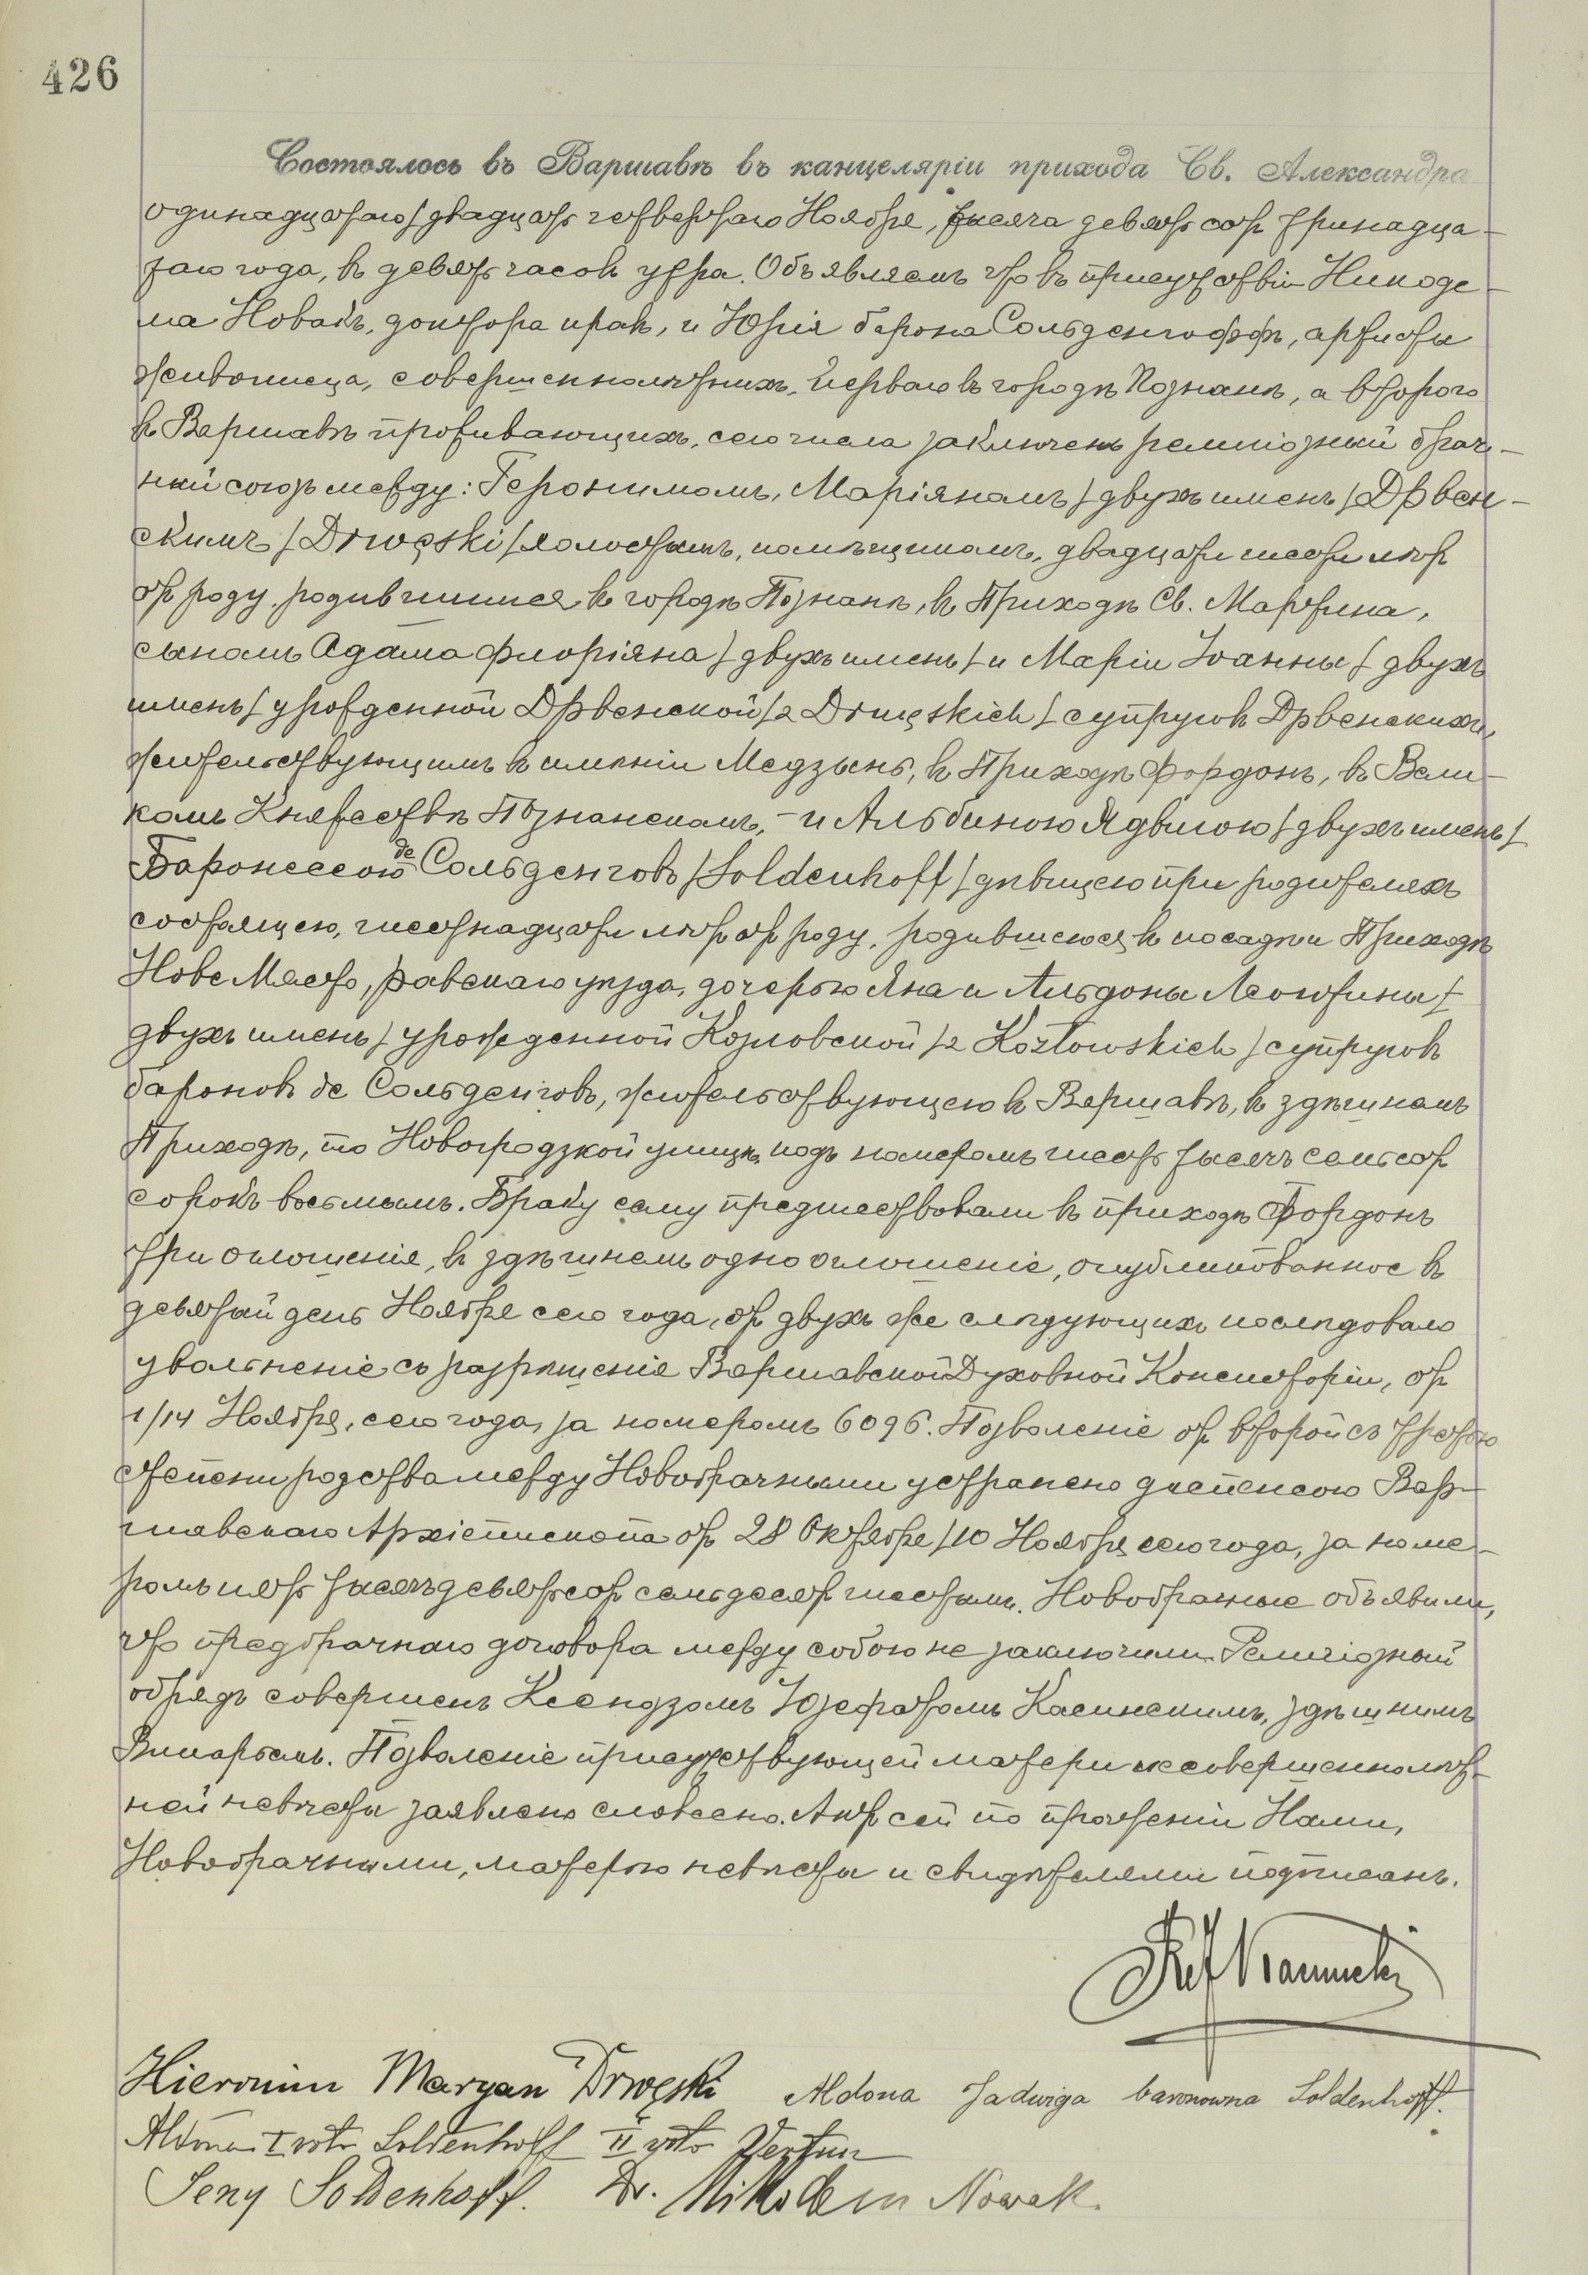 426
Состоялось въ Варшавѣ въ канцеляріи прихода Св. Александра
одинадцатаго/двадцать четвертаго Ноября, тысяча девятьсотъ тринадца-
таго года, въ девять часовъ утра. Объявляемъ что въ присутствіи Никоде-
ма Новакъ, доктора правъ, и Юрія барона Сольденгоффъ, артисты
живописца, совершеннолѣтнихъ, перваго въ городѣ Познанѣ, а второго
въ Варшавѣ проживающихъ, сего числа заключенъ религіозный брач-
ный союзъ между: Геронимомъ, Маріяномъ /двухъ именъ/ Дрвен-
скимъ /Drwęski/ холостымъ, помѣщикомъ, двадцати шести лѣтъ
отъ роду, родившимся въ городѣ Познанѣ, въ Приходѣ Св. Мартина,
сыномъ Адама Флоріяна /двухъ именъ/ и Маріи Іоанны /двухъ
именъ/ урожденной Дрвенской /z Drwęskich/ супруговъ Дрвенскихъ,
жительствующимъ въ имѣніи Медзынь, въ Приходѣ Фордонъ, въ Вели-
комъ Княжествѣ Познанскомъ, - и Альбиною Ядвигою /двухъ именъ/
Баронессою де Сольденговъ /Soldenhoff/ дѣвицею при родителяхъ
состоящею, шестнадцати лѣтъ отъ роду, родившеюся въ посадѣ и Приходѣ
Нове Място, Равскаго уѣзда, дочерью Яна и Альдоны Леонтины /
двухъ именъ/ урожденной Козловской /z Kozłowskich/ супруговъ
бароновъ де Сольденговъ, жительствующею въ Варшавѣ, въ здѣшнемъ
Приходѣ, по Новогродзкой улицѣ подъ номеромъ шесть тысячъ семьсотъ
сорокъ восьмымъ. Браку сему предшествовали въ приходѣ Фордонъ
три оглошенія, въ здѣшнемъ одно оглошеніе, опубликованное въ
девятый день Ноября сего года, отъ двухъ же слѣдующихъ послѣдовало
увольненіе съ разрѣшенія Варшавской Духовной Консисторіи, отъ
1/14 Ноября, сего года, за номеромъ 6096. Позволеніе отъ второй съ третью
степени родства между Новобрачными устранено диспенсою Вар-
шавскаго Архіепископа отъ 28 Октября /10 Ноября сего года, за номе-
ромъ пять тысячъ девятьсотъ семьдесятъ шестымъ. Новобрачные объявили,
что предбрачнаго договора между собою не заключили. Религіозный
обрядъ совершенъ Ксендзомъ Юзефатомъ Касинскимъ, здѣшнимъ
Викаріемъ. Позволеніе присутствующей матери несовершеннолѣт-
ней невѣсты заявлено словесно. Актъ сей по прочтеніи Нами,
Новобрачными, матерью невѣсты и свидѣтелями подписанъ.
Hieronim Maryan Drwęski Aldona Jadwiga baronowna Soldenhoff.
Aldona I voto Soldenhoff II voto Vertun
Jerzy Soldenhoff. Dr. Nikodem Nowak.